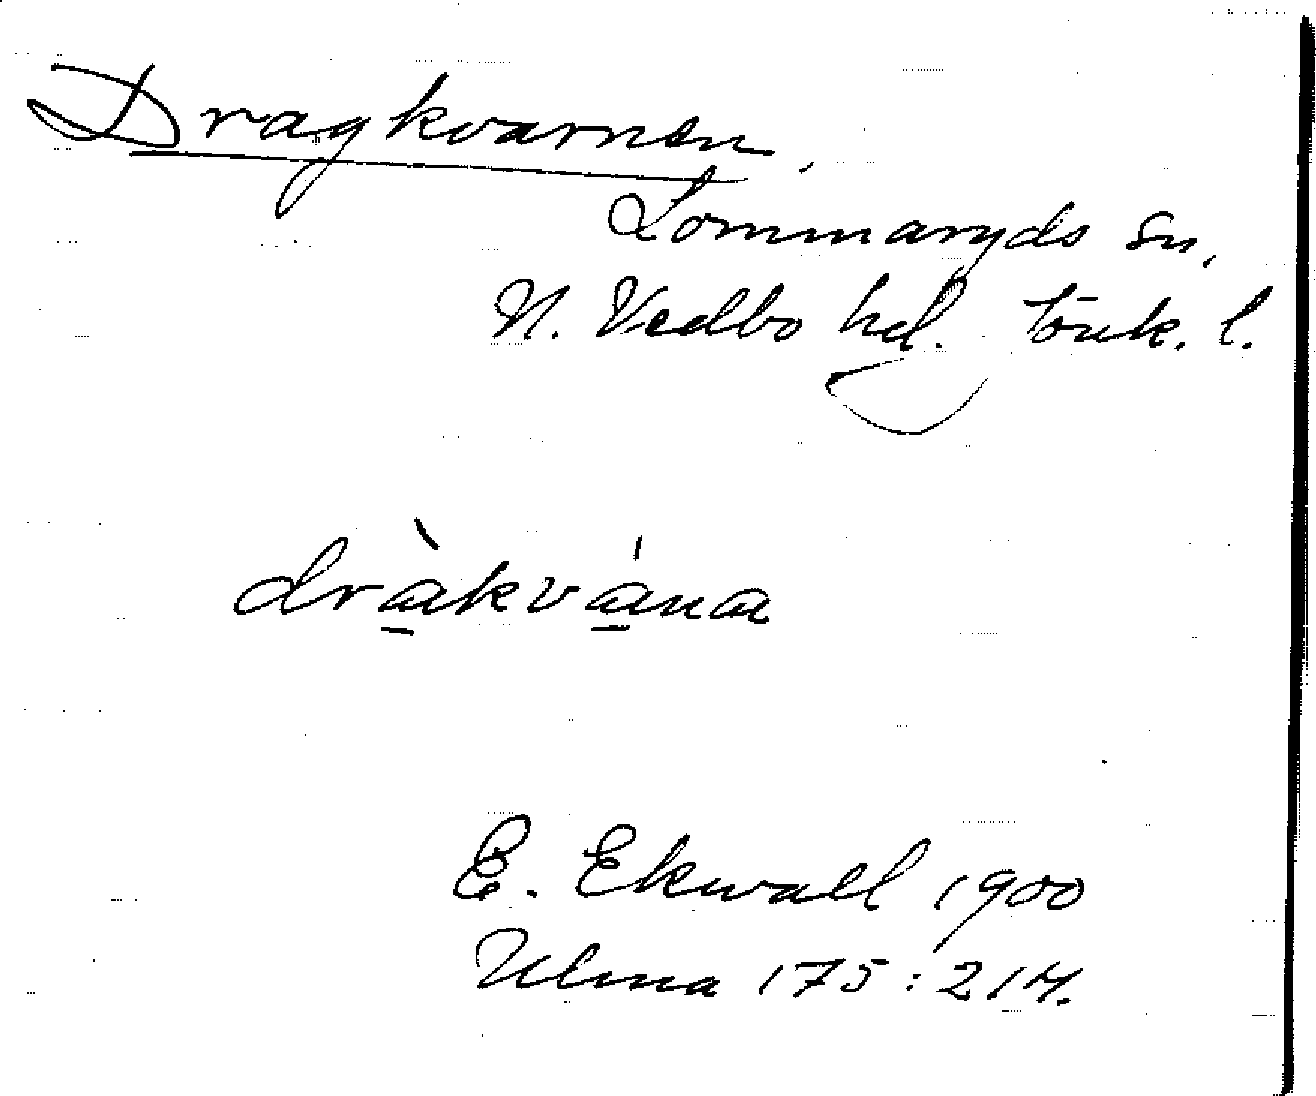 Dragkvarnen,
Lommaryds sn,
N. Vedbo hd. Jönk. l.
dràkvána
E. Ekwall 1900
Ulma 175:214.